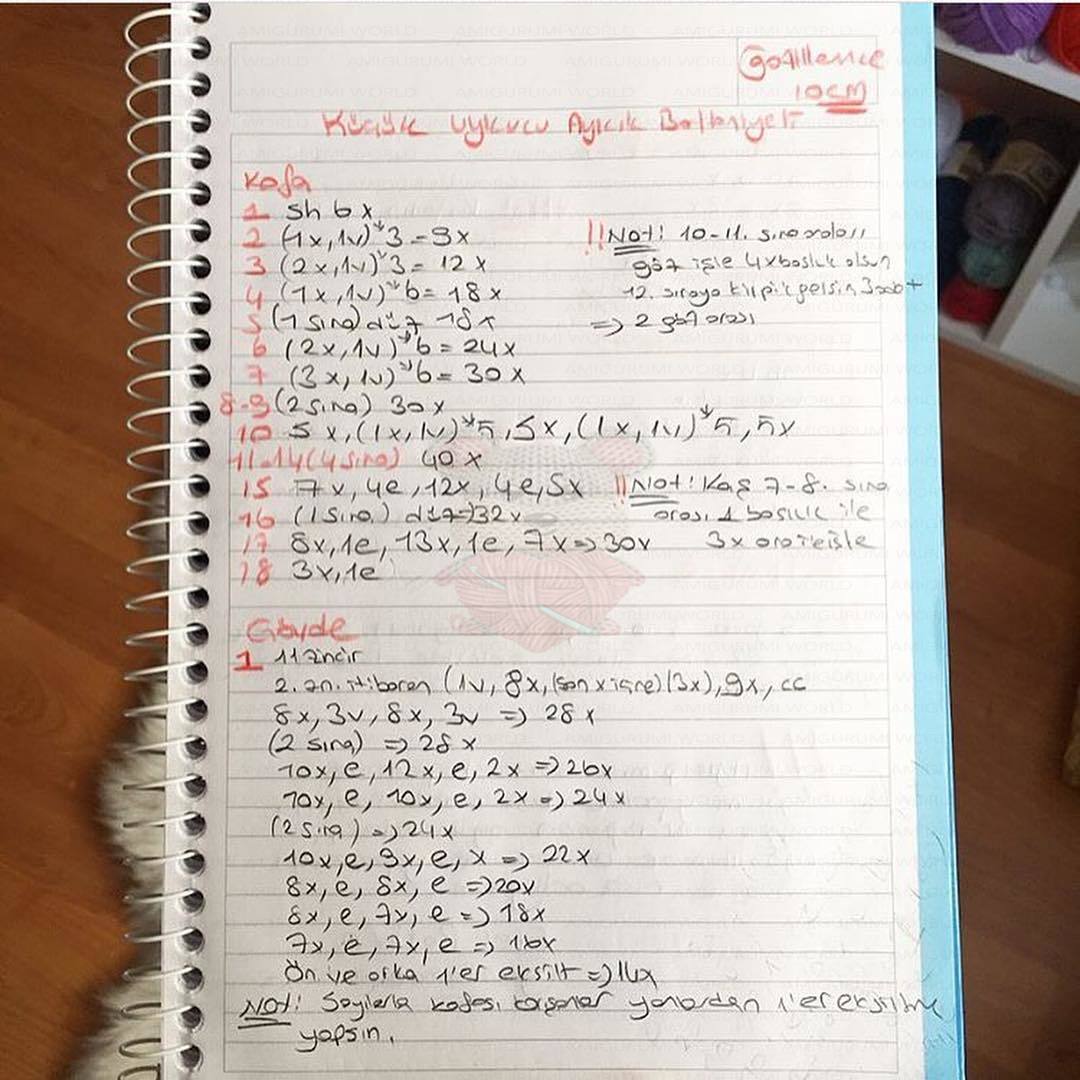 10CM
Küçük Uykucu Ayıcık Battaniyeli
Kafa
1 Sh 6x
2 (1x,1v)*3=9x
3 (2x,1v)*3=12x
4 (1x,1v)*6=18x
5 (1 sıra) düz 18x
6 (2x,1v)*6=24x
7 (3x,1v)*6=30x
8-9 (2 sıra) 30x
10 5x,(1x,1v)*5,5x,(1x,1v)*5,5x
11-14 (4 sıra) 40x
15 7x,4e,12x,4e,5x
16 (1 sıra) düz=>32x
17 8x,1e,13x,1e,7x=>30x
18 3x,1e
!!Not! 10-11. sıra arası
göz işle 4x boşluk olsun
12. sıraya kirpik gelsin
=> 2 göz arası
!!Not! Kaş 7-8. sıra
arası 1 boşluk ile
3x
Gövde
1 11 zincir
2. zn. itibaren (1v, 8x,(son x içine)(3x),9x, cc
8x, 3v, 8x, 3v => 28x
(2 sıra) => 28x
10x, e, 12x, e, 2x =>26x
10x, e, 10x, e, 2x => 24x
(2 sıra) => 24x
10x,e,9x,e,x => 22x
8x, e, 8x, e =>20x
8x, e, 7x, e => 18x
7x, e, 7x, e => 16x
Ön ve arka 1'er eksilt =>14x
Not! kafası yanlardan 1'er
yapsın.
AMIGURUMI WORLD